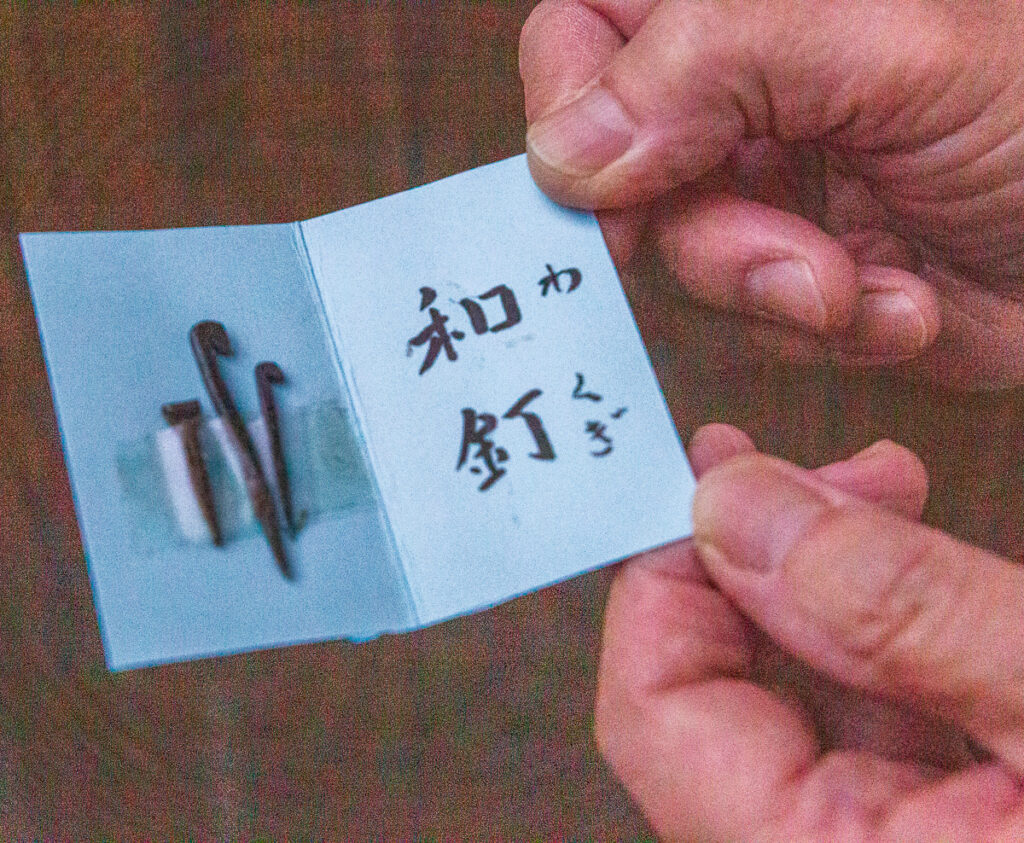 和釘
わくぎ